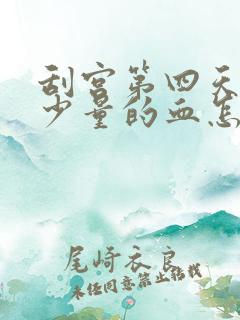 刮宫第四天
少量的血怎
尾崎衣良
未经同意禁止转载